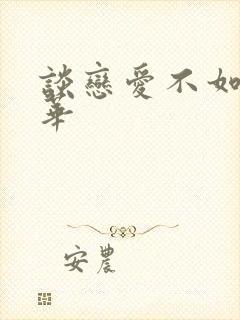 談戀愛不如
華
安農